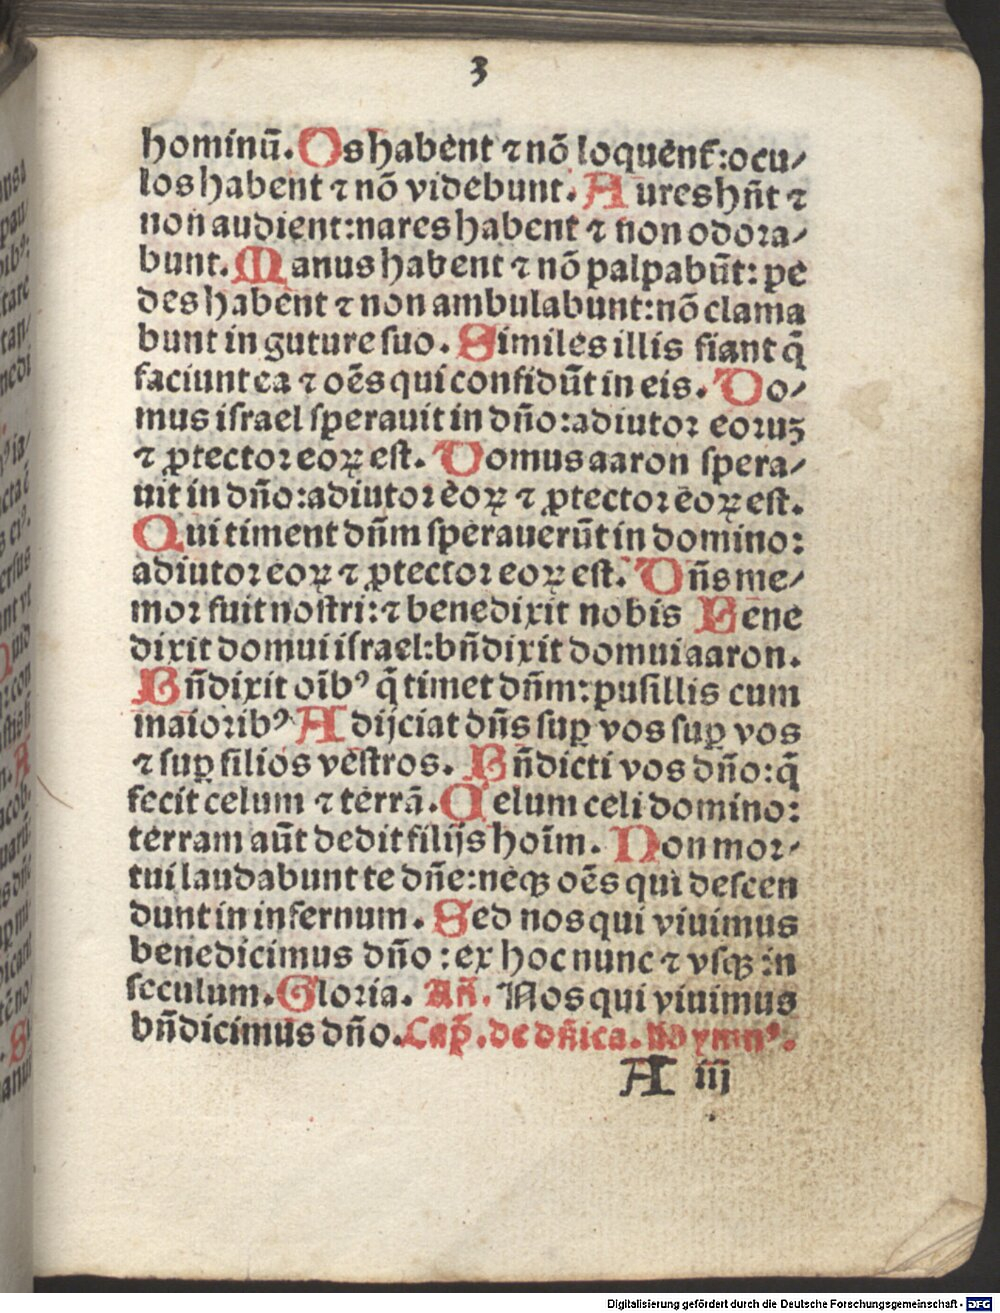 3
hominū. Os habent ⁊ nō loquent̄: ocu⸗
los habent ⁊ nō videbunt. Aures hn̄t ⁊
non audient: nares habent ⁊ non odora⸗
bunt. Manus habent ⁊ nō palpabūt: pe
des habent ⁊ non ambulabunt: nō clama
bunt in guture suo. Similes illis fiant q̄
faciunt ea ⁊ oēs qui confidūt in eis. Do⸗
mus israel sperauit in dn̄o: adiutor eoruꝫ
⁊ ꝓtector eoꝝ est. Domus aaron spera⸗
uit in dn̄o: adiutor eoꝝ ⁊ ꝓtector eoꝝ est.
Qui timent dn̄m sperauerūt in domino:
adiutor eoꝝ ⁊ ꝓtector eoꝝ est. Dn̄s me⸗
mor fuit nostri: ⁊ benedixit nobis Bene
dixit domui israel: bn̄dixit domui aaron.
Bn̄dixit oīb⁹ q̄ timet dn̄m: pusillis cum
maiorib⁹ Adijciat dn̄s suꝑ vos suꝑ vos
⁊ suꝑ filios vestros. Bn̄dicti vos dn̄o: q̄
fecit celum ⁊ terrā. Celum celi domino:
terram aūt dedit filijs hoīm. Non mor⸗
tui laudabunt te dn̄e: neqꝫ oēs qui descen
dunt in infernum. Sed nos qui viuimus
benedicimus dn̄o: ex hoc nunc ⁊ vsqꝫ in
seculum. Gloria. Añ. Nos qui viuimus
bn̄dicimus dn̄o. Cap̄. de dn̄ica.
A iij
Digitalisierung gefördert durch die Deutsche Forschungsgemeinschaft - DFG